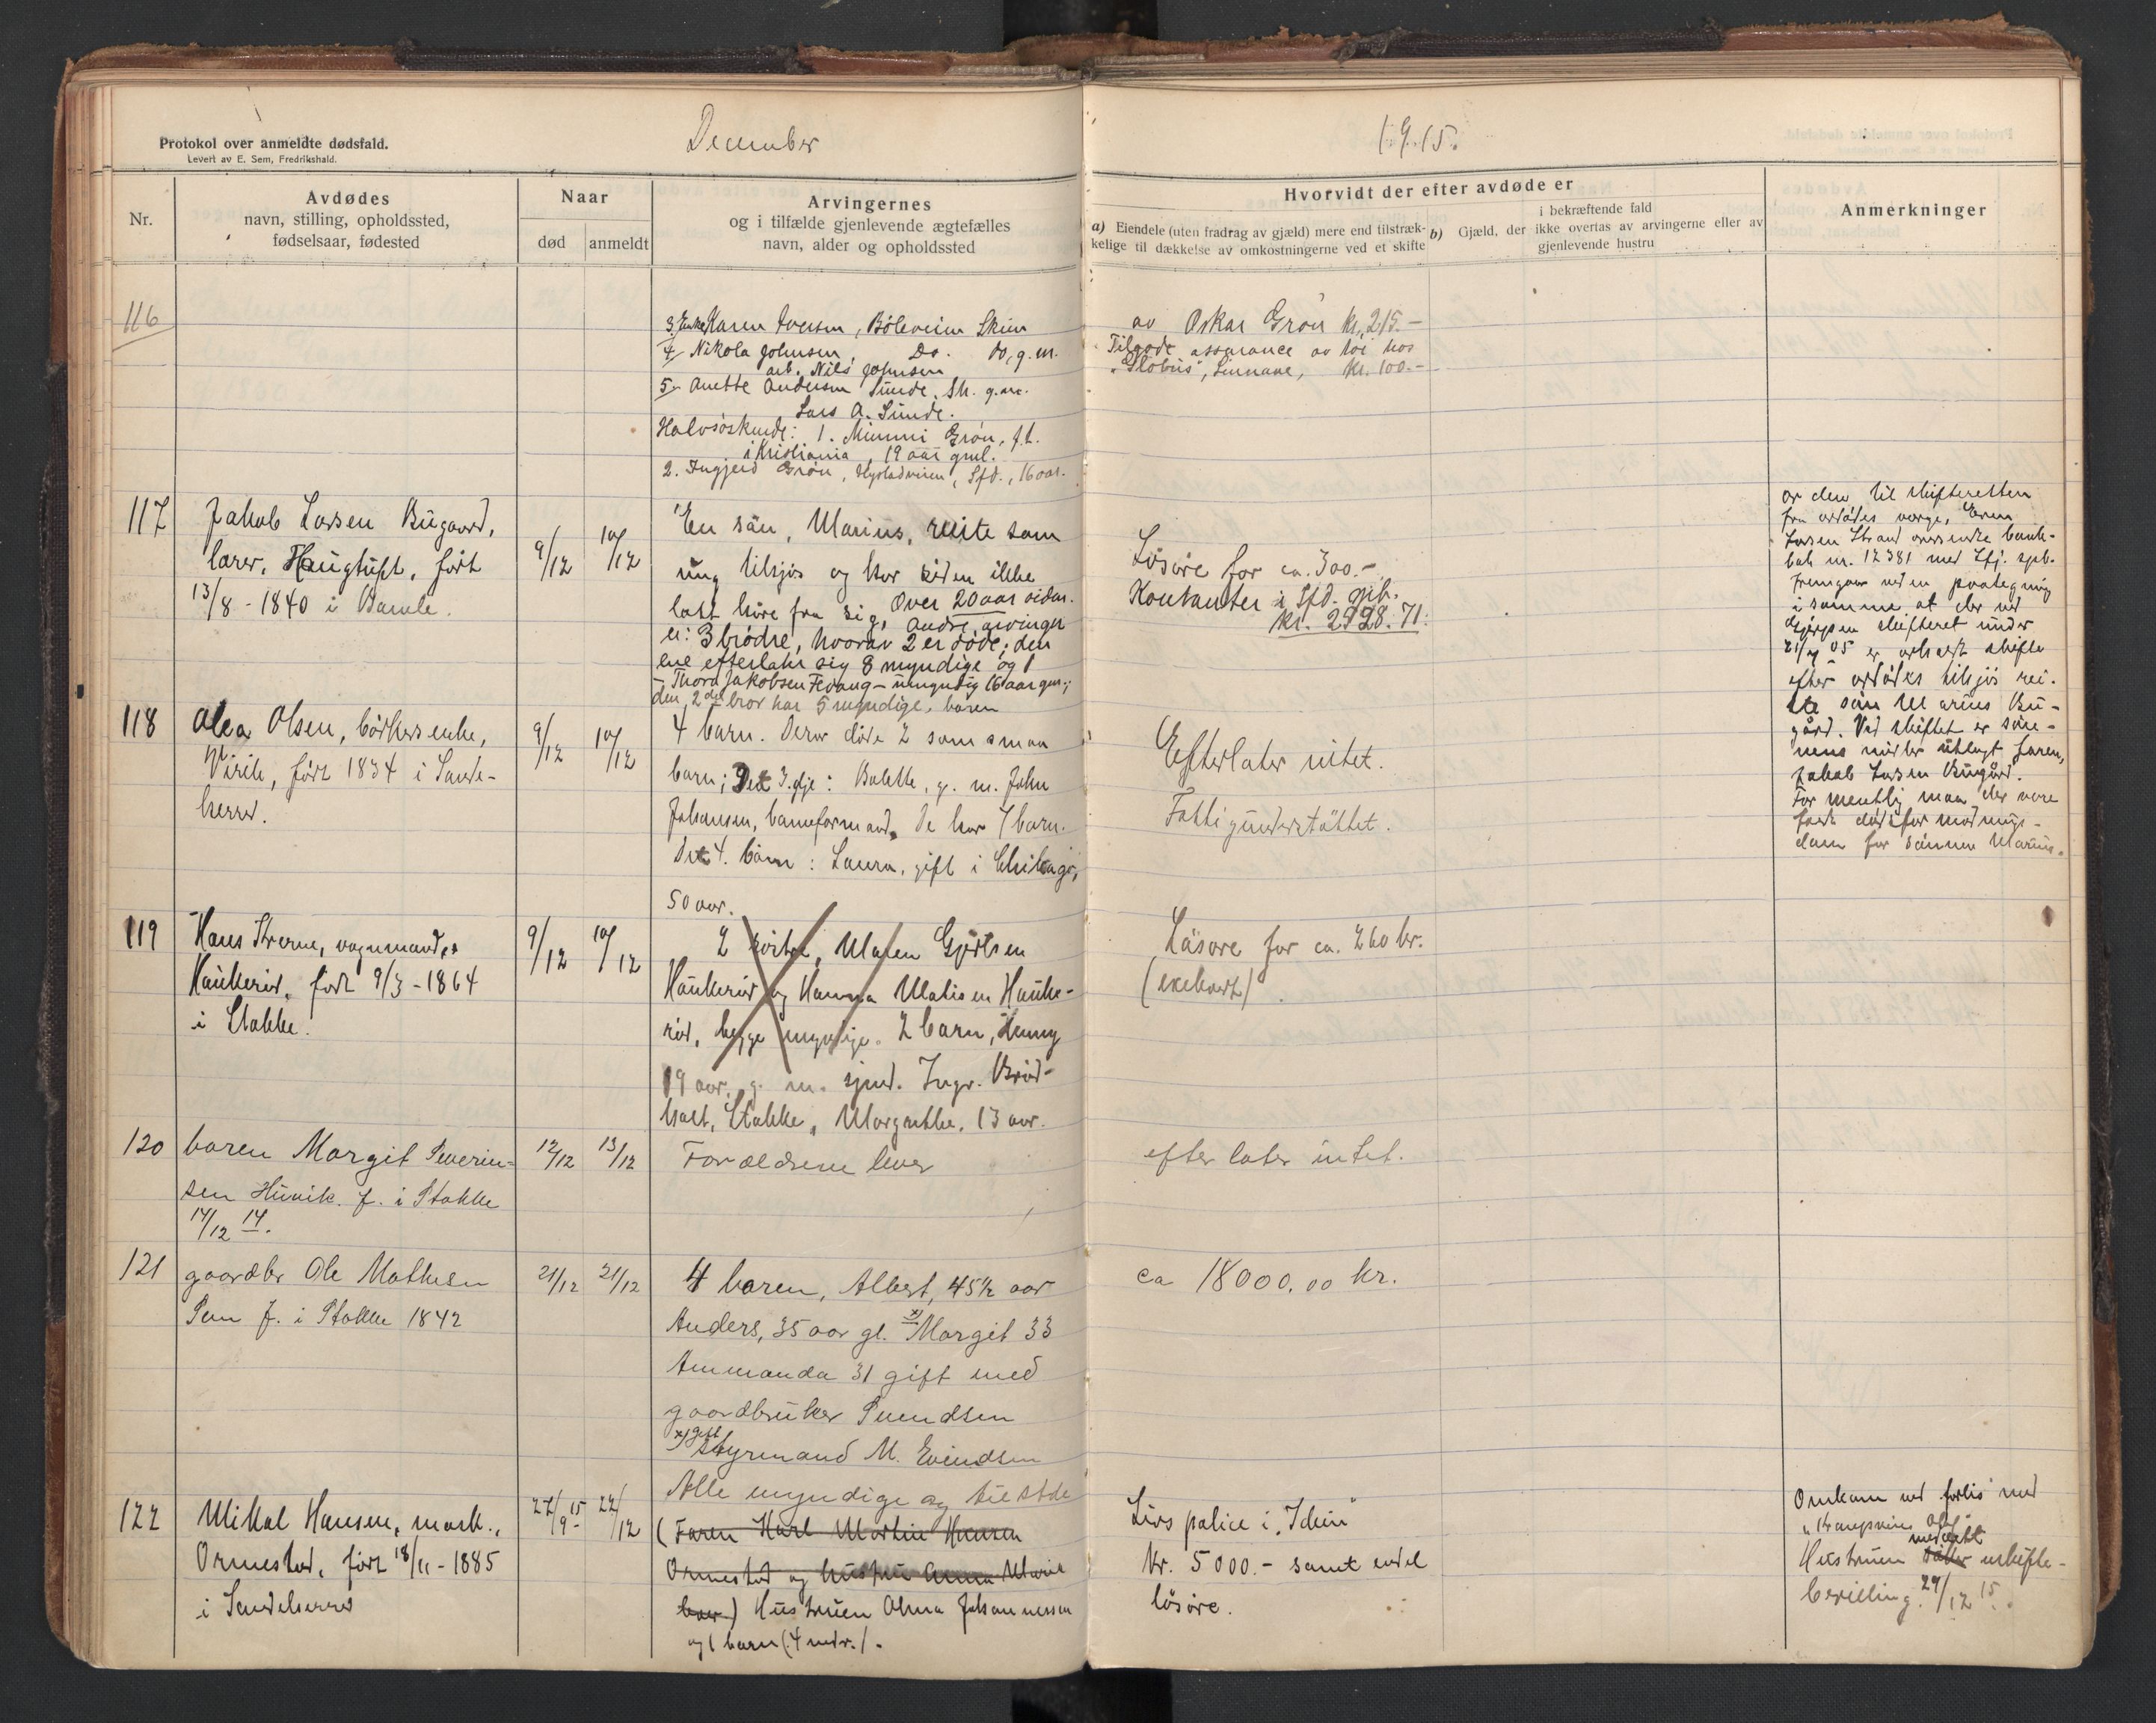 Protokol over anmeldte dødsfald.
Levert av E. Sem, Fredrikshald.
December
1915.
Nr.
Avdødes
navn, stilling, opholdssted,
fødselsaar, fødested
Naar
død
anmeldt
Arvingernes
og i tilfælde gjenlevende ægtefælles
navn, alder og opholdssted
Hvorvidt der efter avdøde er
a) Eiendele (uten fradrag av gjæld) mere end tilstræk-
kelige til dækkelse av omkostningerne ved et skifte
b) Gjæld, der
i bekræftende fald
ikke overtas av arvingerne eller av
gjenlevende hustru
Anmerkninger
116
3. Enke Karen Iversen, Böleveien Skien
4 Nikola Johnsen, Do. do, g. m.
arb. Nils Johnsen
5 Anette Andersen Sunde, Sk. g. m.
Lars A. Sunde.
Halvsöskende: 1. Mimmi Grön, f. t.
i Kristiania, 19 aar gml.
2. Ingjerd Grön, Sfd., 16 aar.
av Oskar Grön kr. 215.-
Tilgode assurance av hos
"Globus", kr. 100.-
117
Jakob Larsen Bugaard,
Haugtuft, født
13/8 - 1840 i Bamle.
9/12
10/12
En sön, Marius, reiste som
ung tilsjös og har siden ikke
latt höre fra sig, Over 20 aar siden.
Andre arvinger
er: 3 brödre, hvorav 2 er döde; den
ene efterlater sig 8 myndige og 1
- Thora Jakobsen Fevang - umyndig 16 aar gm.;
den 2den bror har 5 myndige barn
Lösöre for ca. 300.-
Kontanter i Sfd. spb.
kr. 2928.71.
av den til skifteretten
fra avdödes verge, Even
Larsen Strand oversendte bank-
bok nr. 12381 med Sfj. spb.
fremgaar ved en paategning
i samme at der ved
Gjerpen skifteret under
21/4 05 er avholdt skifte
efter avdödes tilsjös rei-
ste sön Marius Bu-
gård. Ved skiftet er sön-
nens midler utlagt faren,
Jakob Larsen Bugård.
Formentlig maa der være
faat dödsformodnings-
dom for sönnen Marius.
118
Olea Olsen, bödkersenke,
Virik, födt 1834 i Sande-
herred.
9/12
10/12
4 barn. Derav döde 2 som smaa
barn; Det 3.dje: Bolette, g. m. John
Johansen, baneformand. De har 7 barn.
Det 4. barn: Laura, gift i Chikago,
50 aar.
Efterlater intet.
Fattigunderstöttet.
119
Hans vognmand,
Haukeröd, födt 9/3 - 1864
i Stokke.
9/12
10/12
2 Maren Gjertsen
Haukeröd og Hanna Matisen Hauke-
röd, begge myndige. 2 barn, Henny
19 aar, g. m. sjmd. Ingv. Bröd-
holt, Stokke, Margrethe, 13 aar.
Lösöre for ca. 260 kr.
120
baren Margit Severin-
sen Hunik. f. i Stokke
14/12 14.
12/12
13/12
Forældrene lever
efterlater intet.
121
gaardbr Ole Mathisen
Sem f. i Stokke 1842
21/12
21/12
4 baren, Albert, 45 1/2 aar
Anders, 35 aar gl. x) Margit 33
Ammanda 31 gift med
gaardbruker Svendsen
x) gift
styrmand M. Evendsen
Alle myndige og tilstede
ca 18000.00 kr.
122
Mikal Hansen, mask.,
Ormestad, födt 18/11 - 1885
i Sandeherred
27/9 15
22/12
(Faren Karl Martin Hansen
Ormestad og hustru Anna Marie
lever) Hustruen Alma Johannessen
og 1 barn (4 mdr.).
Livspolice i "Idun"
kr. 5000.- samt endel
lösöre.
Omkom ved forlis med
Hustruen meddelt uskifte-
bevilling 29/12 15.